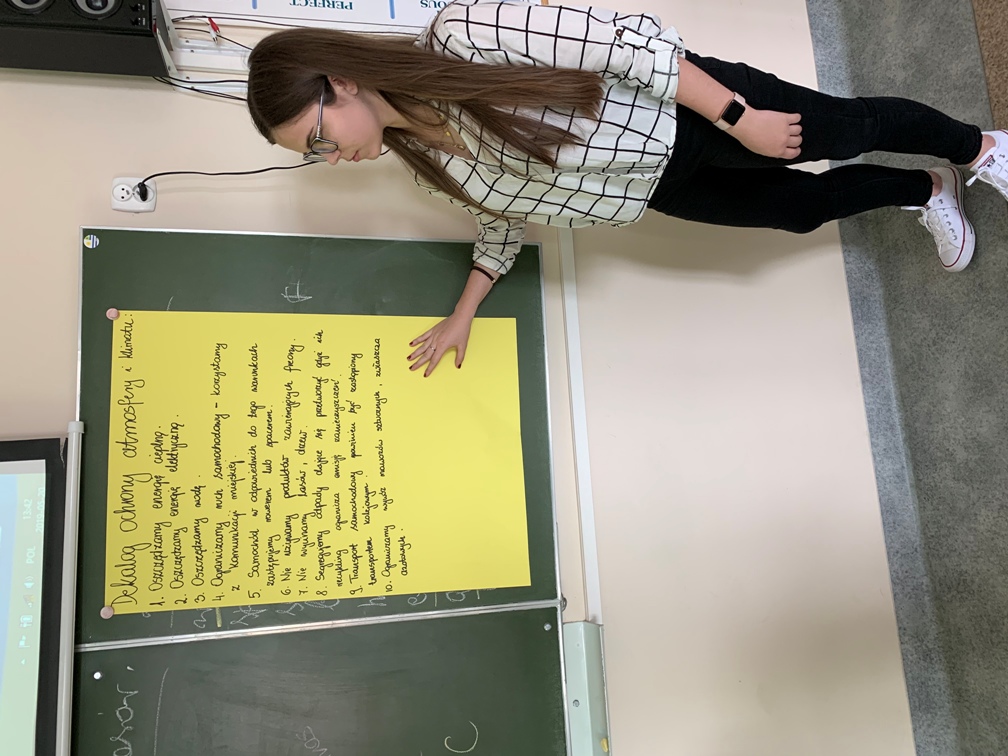 Dekalog ochrony atmosfery i klimatu:
1. Oszczędzamy energię cieplną.
2. Oszczędzamy energię elektryczną.
3. Oszczędzamy wodę.
4. Ograniczamy ruch samochodowy - korzystamy
z komunikacji miejskiej.
5. Samochód w odpowiednich do tego warunkach
zastępujmy rowerem lub spacerem.
6. Nie używamy produktów zawierających freony.
7. Nie wycinamy lasów, drzew.
8. Segregujemy odpady dające się przetworzyć gdyż ich
recykling ogranicza emisję zanieczyszczeń.
9. Transport samochodowy powinien być zastąpiony
transportem kolejowym.
10. Ograniczamy użycie nawozów sztucznych, zwłaszcza
azotowych.
PERFECT
OUS
POL
13:42
C